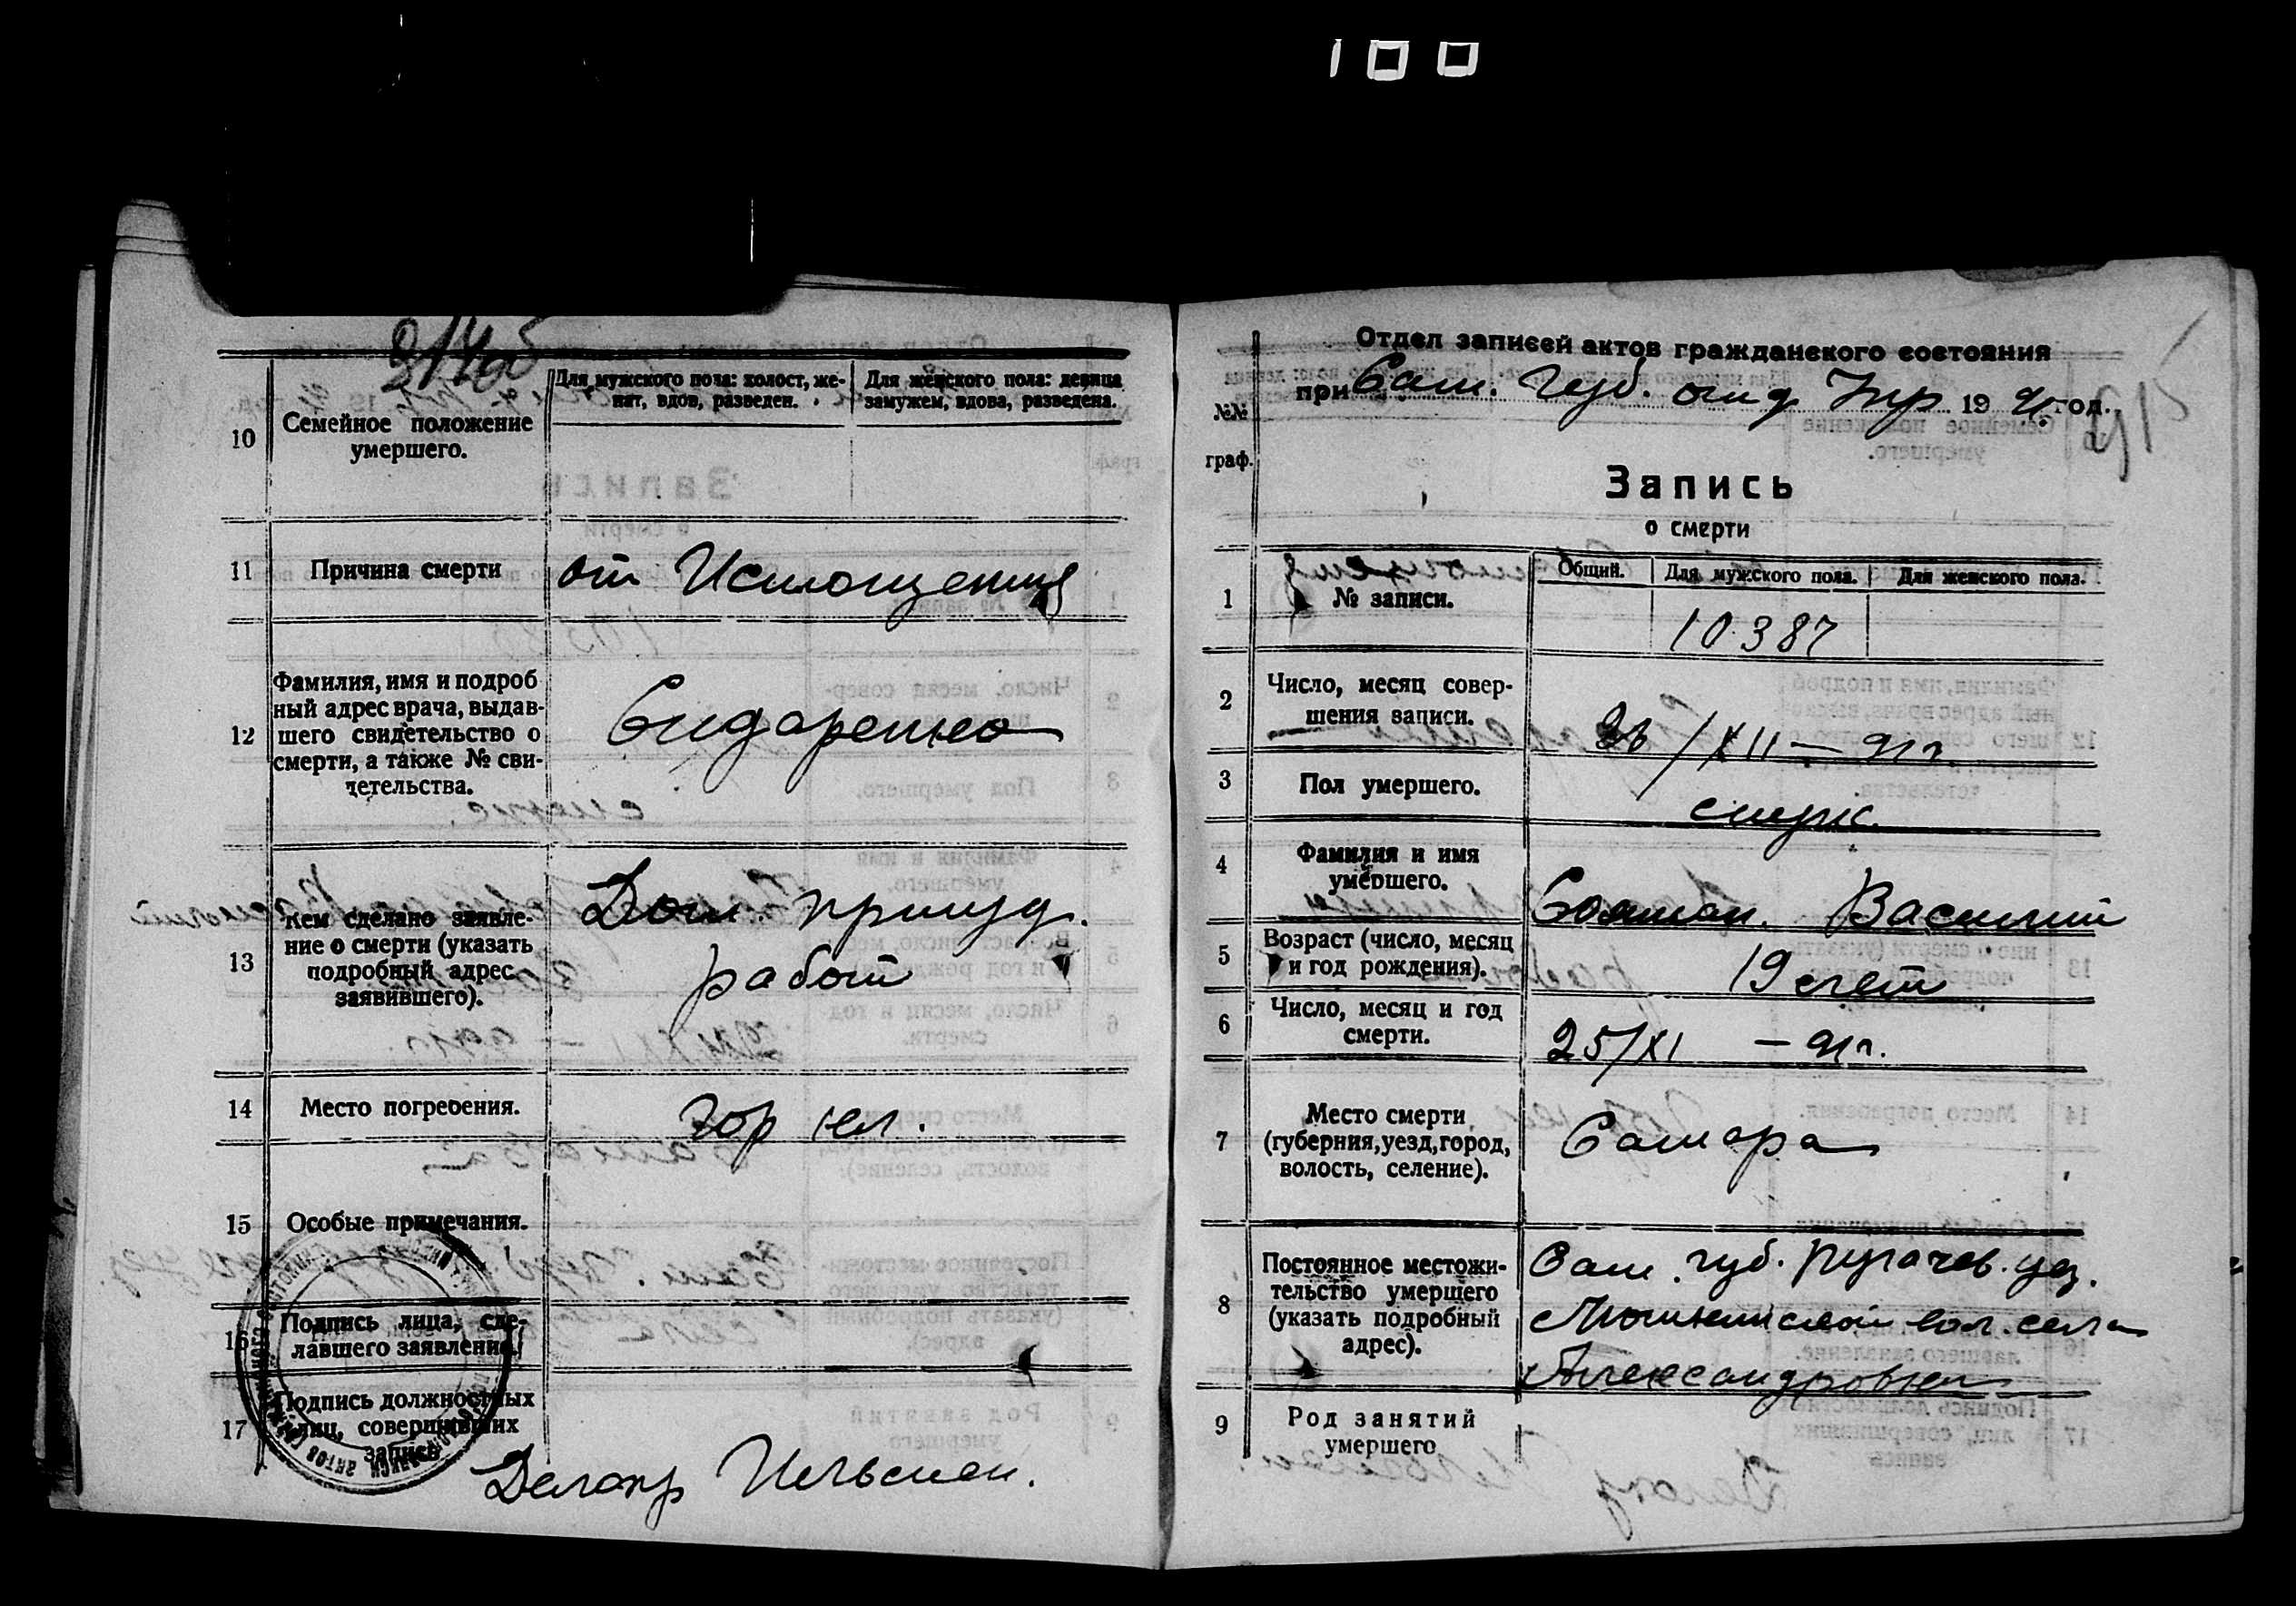 100
10
Семейное положение
умершего.
Для мужского пола: холост, же-
нат, вдов, разведен.
Для женского пола: девица
замужем, вдова, разведена.
11
Причина смерти
от Истощения
12
Фамилия, имя и подроб
ный адрес врача, выдав-
шего свидетельство о
смерти, а также № сви-
детельства.
Сидоренко
13
Кем сделано заявле-
ние о смерти (указать
подробный адрес
заявившего).
Дом. принуд.
работ
14
Место погребения.
Гор кл.
15
Особые примечания.
16
Подпись лица, сде-
лавшего заявление.
17
Подпись должностных
лиц, совершивших
запись
Делопр
Отдел записей актов гражданского состояния
при Сам. Губ. отд Упр 1921 год.
№№
граф.
Запись
о смерти
1
№ записи.
Общий.
Для мужского пола.
Для женского пола.
10387
2
Число, месяц совер-
шения записи.
/XII — 21 г.
3
Пол умершего.
муж.
4
Фамилия и имя
умершего.
Василий
5
Возраст (число, месяц
и год рождения).
19 лет
6
Число, месяц и год
смерти.
25/XI — 21 г.
7
Место смерти
(губерния, уезд, город,
волость, селение).
Самара
8
Постоянное местожи-
тельство умершего
(указать подробный
адрес).
Сам. губ. Пугачев. уез.
вол. села
Александровки
9
Род занятий
умершего